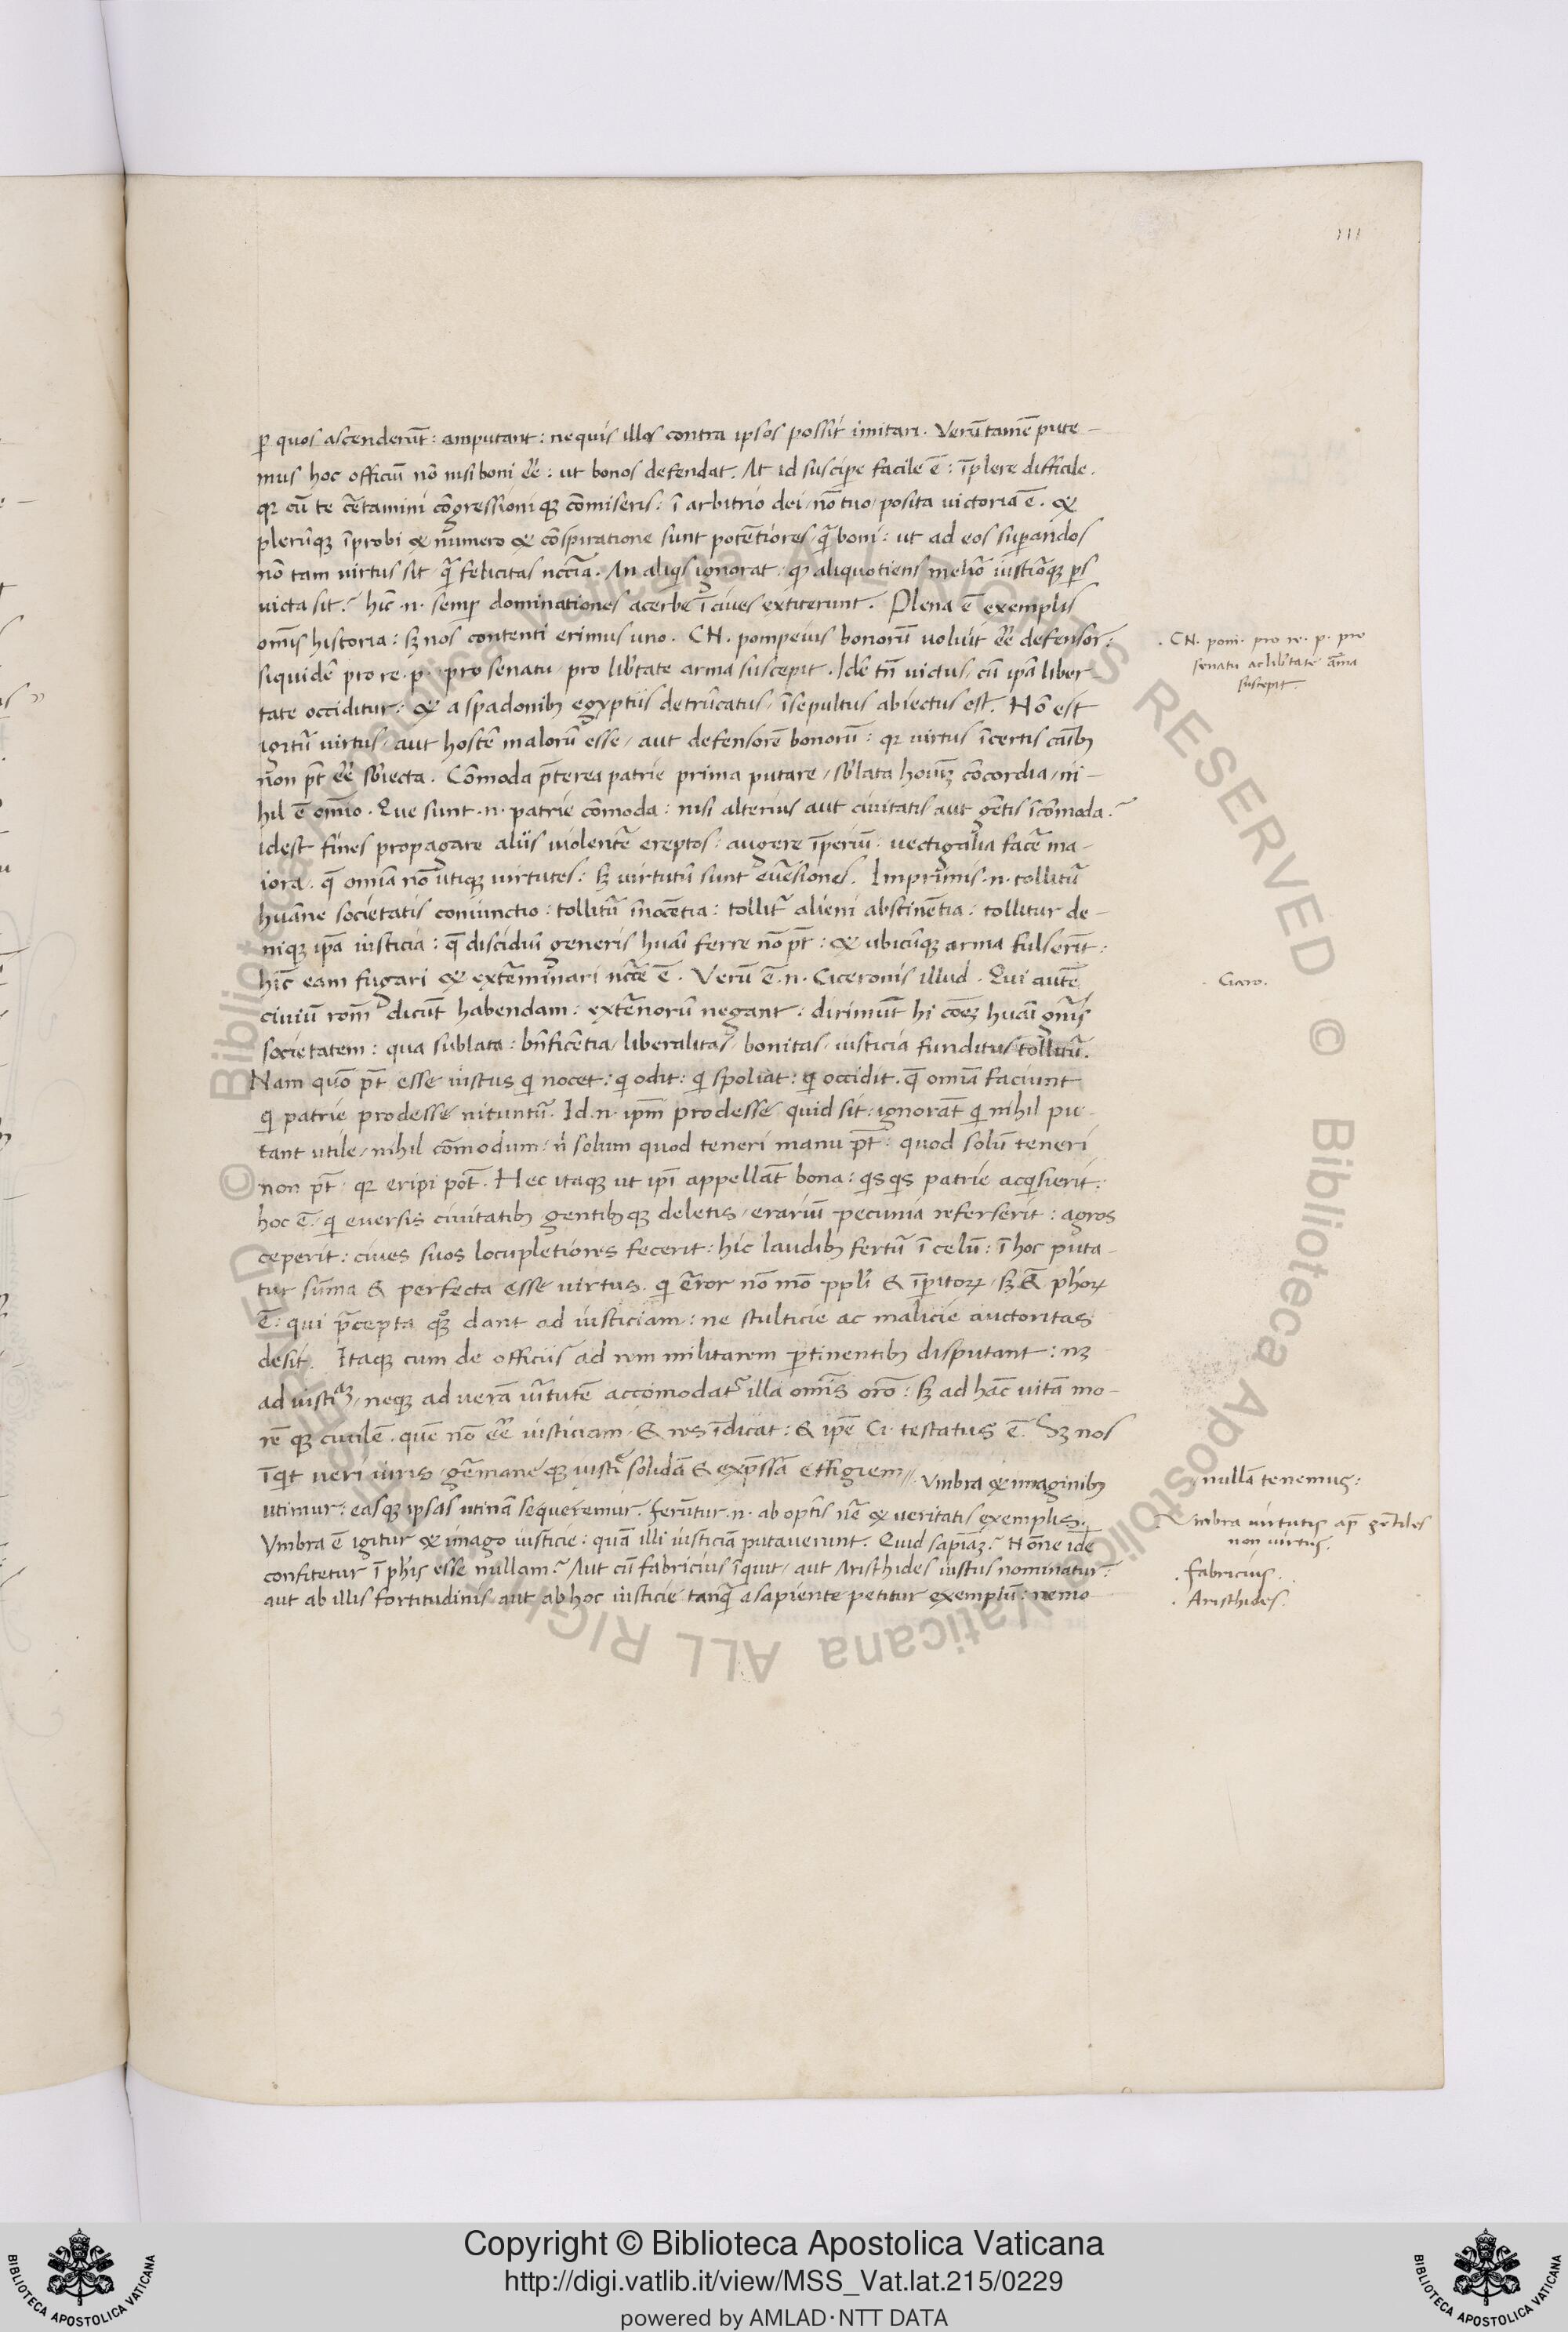 111
ꝑ quos ascenderūt: amputant: nequis illos contra ipsos possit imitari. Verūtamē pute-
mus hoc officiū nō nisi boni ēē: ut bonos defendat. At id suscipe facile ē: īplere difficile.
qꝛ cū te c̄tamini cōgressioniqꝫ cōmiseris: ī arbitrio dei / nō tuo / posita victoria ē. &
plerūqꝫ īprobi & numero & cōspiratione sunt potētiores / qā boni: ut ad eos suꝑandos
nō tam virtus sit qā felicitas nccīa. An aliqs ignorat: qꝫ aliquotiens meliō iustiōqꝫ ꝑs
victa sit? hīc .n. semꝑ dominationes acerbe ī cives extiterunt. Plena ē exemplis
omīs historia: sꝫ nos contenti erimus uno. CN. pompeius bonorū voluit ēē defensor:
siquidē pro re .p. / pro senatu / pro libtate arma suscepit. Idē tn̄ victus / cū ipā liber-
tate occiditur: & a spadonibꝫ egyptiis detrūcatus / īsepultus abiectus est. Nō est
igitū virtus / aut hostē malorū esse / aut defensorē bonorū: qꝛ virtus īcertis cāibꝫ
non pt̄ ēē sbiecta. Cōmoda p̄terea patrie prima putare / sblata hoīuꝫ cōcordia / ni-
hil ē omīo. Que sunt .n. patrie cōmoda: nisi alterius aut civitatis aut gētis īcōmoda?
idest fines propagare aliis violentē ereptos: augere īperiū: vectigalia facē ma-
iora. qē omīa nō utiqꝫ virtutes: sꝫ virtutū sunt evēsiones. Imprimis .n. tollitū
huāne societatis coniunctio: tollitū īnocētia: tollitr̄ alieni abstinētia: tollitur de-
niqꝫ ipā iusticia: qē discidiū generis huāi ferre nō pt̄: & ubicūqꝫ arma fulserūt:
hīc eam fugari & extēminari nccē ē. Verū ē .n. Ciceronis illud. Qui autē
civiū rom̄ dicūt habendam: extēnorū negant: dirimūt hi cōēꝫ huāi gn̄is
societatem: qua sublata: bn̄ficētia / liberalitas / bonitas / iusticia funditus tollitū.
Nam quō pt̄ esse iustus qi nocet: qi odit: qi spoliat: qi occidit. qē omīa faciunt
qi patrie prodesse nituntū. Id .n. ipm̄ prodesse quid sit: ignorāt qi nihil pu-
tant utile / nihil cōmodum: n̄ solum quod teneri manu pt̄: quod solū teneri
non pt̄: qꝛ eripi pōt. Hec itaqꝫ ut ipī appellāt bona: qsqs patrie acqsierit:
hoc ē. qi eversis civitatibꝫ gentibꝫqꝫ deletis / erariū pecunia referserit: agros
ceperit: cives suos locupletiores fecerit: hic laudibꝫ fertū ī celū: ī hoc puta-
tur sūma & perfecta esse virtus. qi ēror nō mō ppli & īperitoꝝ / sꝫ & phōꝝ
ē. qui p̄cepta qꝫ dant ad iusticiam: ne stulticie ac malicie auctoritas
desit. Itaqꝫ cum de officiis ad rem militarem ptinentibꝫ disputant: nꝫ
ad iustīaꝫ / neqꝫ ad verā vītutē accōmodatr̄ illa omīs orō: sꝫ ad hāc vitā mo-
rēqꝫ civilē. quē nō ēē iusticiam & res īdicat: & ipē Ci. testatus ē. Sꝫ nos
īqit veri iuris / gēmaneqꝫ iustī solidā & exp̄ssā effigiem // Umbra & imaginibꝫ
utimur: easqꝫ ipsas utinā sequeremur. ferūtur .n. ab optīs nē & veritatis exemplis.
Umbra ē igitur & imago iusticie: quā illi iusticiā putaverunt. Quid sapiāꝫ? Nōne idē
confitetur ī phīs esse nullam? Aut cū fabricius īquit / aut Aristhides iustus nominatur:
aut ab illis fortitudinis aut ab hoc iusticie tanqā a sapiente petitur exemplū: nemo
. CN. pom. pro re. p. pro
senatu ac libtate āma
suscepit.
. Cicero.
nullā tenemus:
. Umbra virtutis ap̄ gētiles
non virtus.
. fabricius.
. Aristhides.
Copyright © Biblioteca Apostolica Vaticana
http://digi.vatlib.it/view/MSS_Vat.lat.215/0229
powered by AMLAD·NTT DATA
BIBLIOTECA APOSTOLICA VATICANA
BIBLIOTECA APOSTOLICA VATICANA
© Biblioteca Apostolica Vaticana ALL RIGHTS RESERVED © Biblioteca Apostolica Vaticana ALL RIGHTS RESERVED